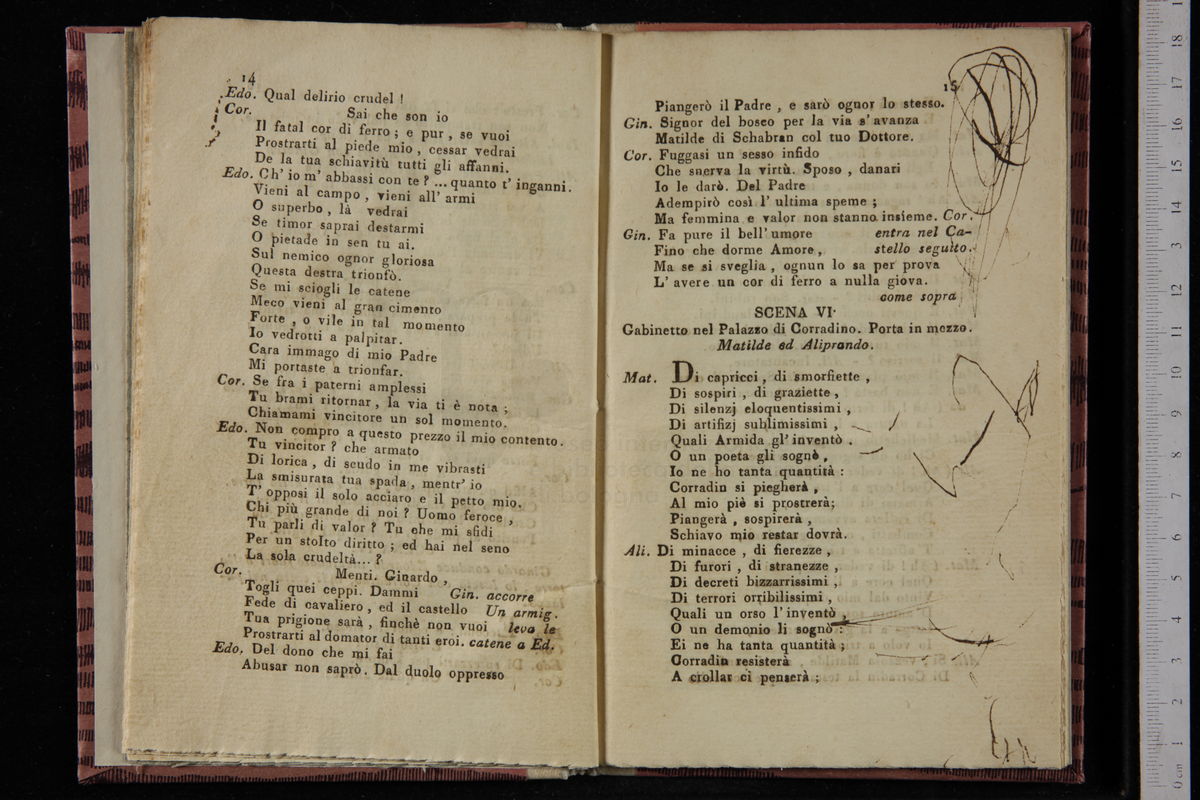 14
Edo. Qual delirio crudel !
Cor. Sai che son io
Il fatal cor di ferro ; e pur , se vuoi
Prostrarti al piede mio , cessar vedrai
De la tua schiavitù tutti gli affanni.
Edo. Ch' io m' abbassi con te ? ... quanto t' inganni.
Vieni al campo , vieni all' armi
O superbo , là vedrai
Se timor saprai destarmi
O pietade in sen tu ai.
Sul nemico ognor gloriosa
Questa destra trionfò.
Se mi sciogli le catene
Meco vieni al gran cimento
Forte , o vile in tal momento
Io vedrotti a palpitar.
Cara immago di mio Padre
Mi portaste a trionfar.
Cor. Se fra i paterni amplessi
Tu brami ritornar , la via ti è nota ;
Chiamami vincitore un sol momento.
Edo. Non compro a questo prezzo il mio contento.
Tu vincitor ? che armato
Di lorica , di scudo in me vibrasti
La smisurata tua spada , mentr' io
T' opposi il solo acciaro e il petto mio.
Chi più grande di noi ? Uomo feroce ,
Tu parli di valor ? Tu che mi sfidi
Per un stolto diritto ; ed hai nel seno
La sola crudeltà... ?
Cor. Menti. Ginardo ,
Togli quei ceppi. Dammi Gin. accorre
Fede di cavaliero , ed il castello Un armig.
Tua prigione sarà , finchè non vuoi leva le
Prostrarti al domator di tanti eroi. catene a Ed.
Edo. Del dono che mi fai
Abusar non saprò. Dal duolo oppresso
15
Piangerò il Padre , e sarò ognor lo stesso.
Gin. Signor del bosco per la via s' avanza
Matilde di Schabran col tuo Dottore.
Cor. Fuggasi un sesso infido
Che snerva la virtù. Sposo , danari
Io le darò. Del Padre
Adempirò così l' ultima speme ;
Ma femmina e valor non stanno insieme. Cor.
Gin. Fa pure il bell' umore entra nel Ca-
Fino che dorme Amore , stello seguito.
Ma se si sveglia , ognun lo sa per prova
L' avere un cor di ferro a nulla giova.
come sopra
SCENA VI.
Gabinetto nel Palazzo di Corradino. Porta in mezzo.
Matilde ed Aliprando.
Mat. Di capricci , di smorfiette ,
Di sospiri , di graziette ,
Di silenzj eloquentissimi ,
Di artifizj sublimissimi ,
Quali Armida gl' inventò .
O un poeta gli sognò ,
Io ne ho tanta quantità :
Corradin si piegherà ,
Al mio piè si prostrerà;
Piangerà , sospirerà ,
Schiavo mio restar dovrà.
Ali. Di minacce , di fierezze ,
Di furori , di stranezze ,
Di decreti bizzarrissimi ,
Di terrori orribilissimi ,
Quali un orso l' inventò ,
O un demonio li sognò :
Ei ne ha tanta quantità ;
Corradin resisterà
A crollar ci penserà ;